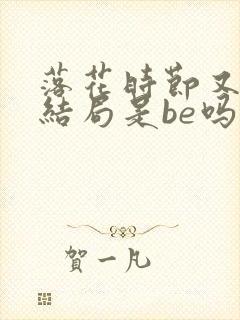 落花時節又
結局是be吗
賀一凡